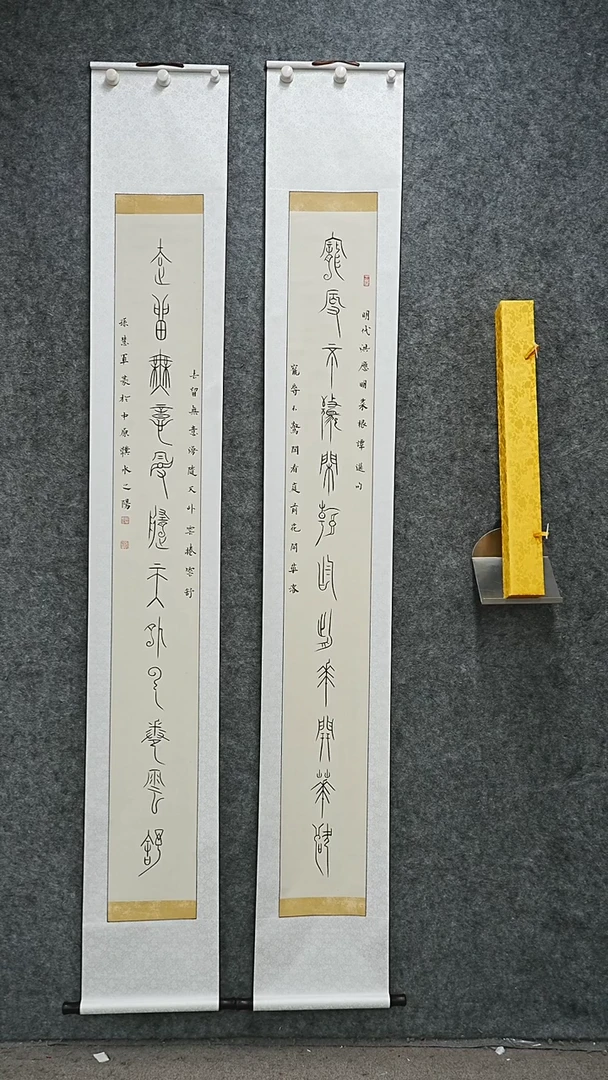 明代洪應明菜根譚選句
寵辱不驚閒看庭前華開華落
寵辱不驚閒看庭前花開華落
去留無意漫隨天外雲卷雲舒
去留無意漫隨天外雲捲雲舒
孫慧軍篆於中原濮水之陽